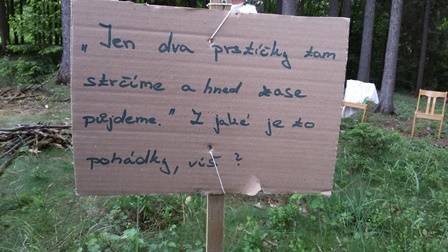 „Jen dva prstíčky tam
strčíme a hned zase
půjdeme.“ Z jaké je to
pohádky, víš?